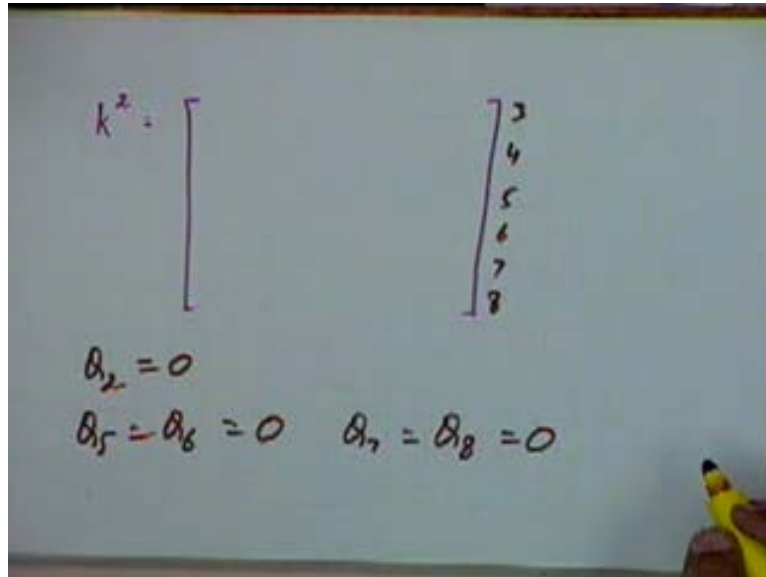 k² = [ ] 3
4
5
6
7
8
Q₂ = 0
Q₅ = Q₆ = 0 Q₇ = Q₈ = 0